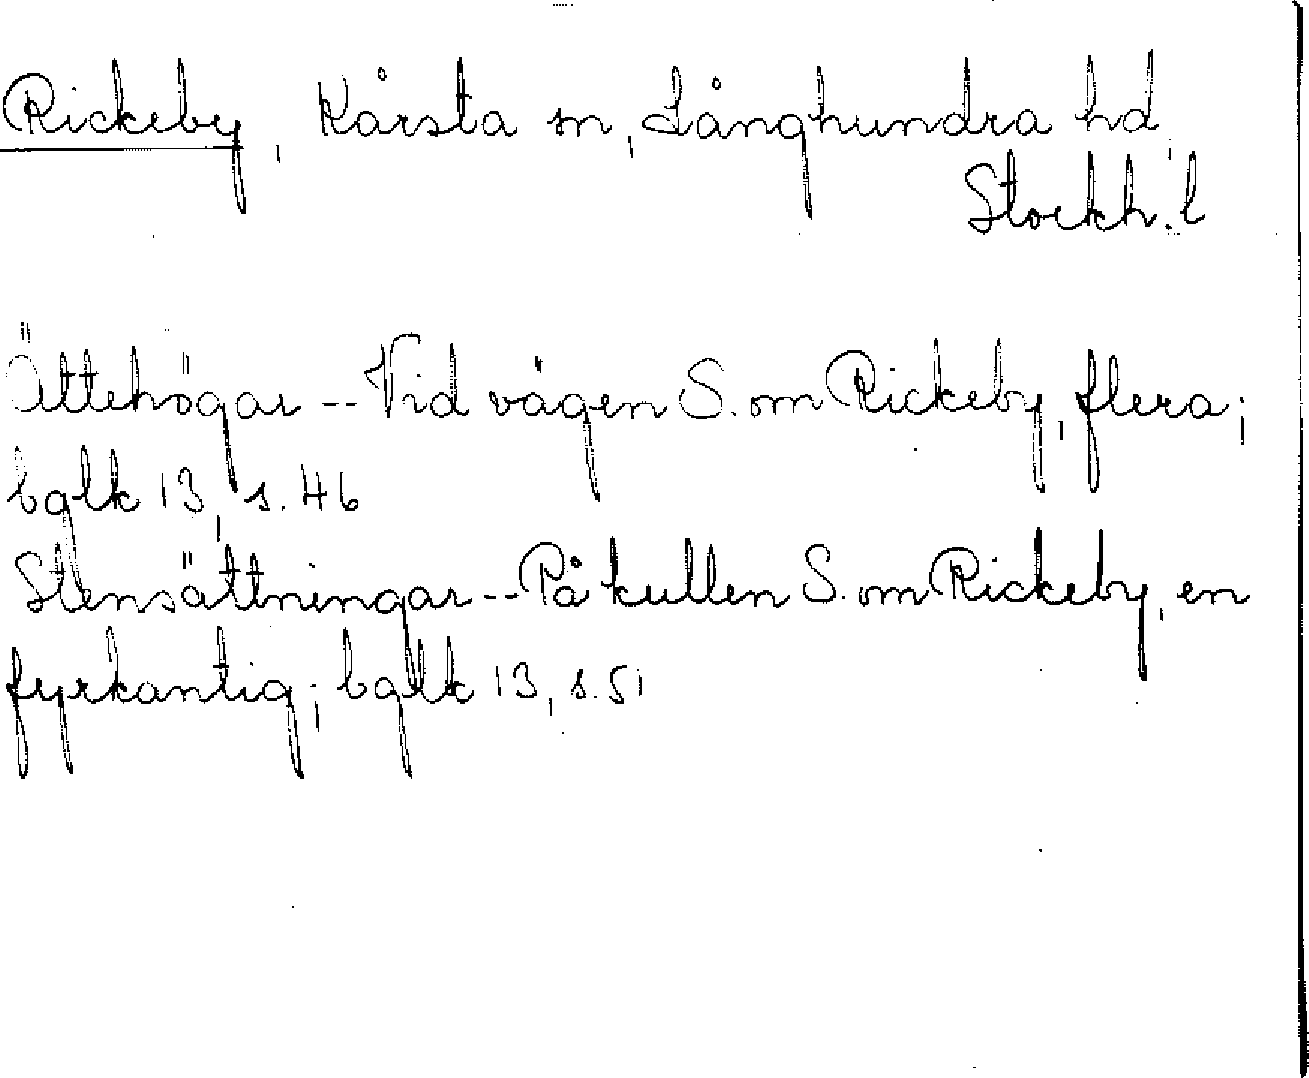 Rickeby, Kårsta sn, Långhundra hd,
Stockh. l
Ättehögar -- Vid vägen S. om Rickeby, flera;
bglk 13, s. 46
Stensättningar -- På kullen S. om Rickeby, en
fyrkantig; bglk 13, s. 51